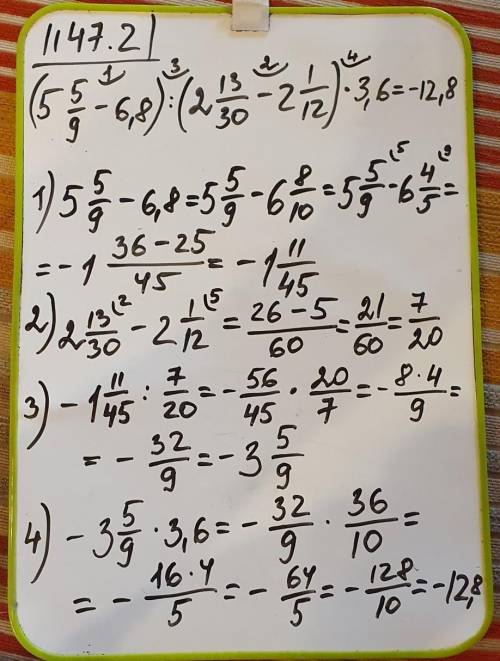 1147.2
(5 5/9 - 6,8) : (2 13/30 - 2 1/12) · 3,6 = -12,8
1) 5 5/9 - 6,8 = 5 5/9 - 6 8/10 = 5 5/9 - 6 4/5 =
= -1 (36 - 25)/45 = -1 11/45
2) 2 13/30 - 2 1/12 = (26 - 5)/60 = 21/60 = 7/20
3) -1 11/45 : 7/20 = -56/45 · 20/7 = -(8·4)/9 =
= -32/9 = -3 5/9
4) -3 5/9 · 3,6 = -32/9 · 36/10 =
= -(16·4)/5 = -64/5 = -128/10 = -12,8